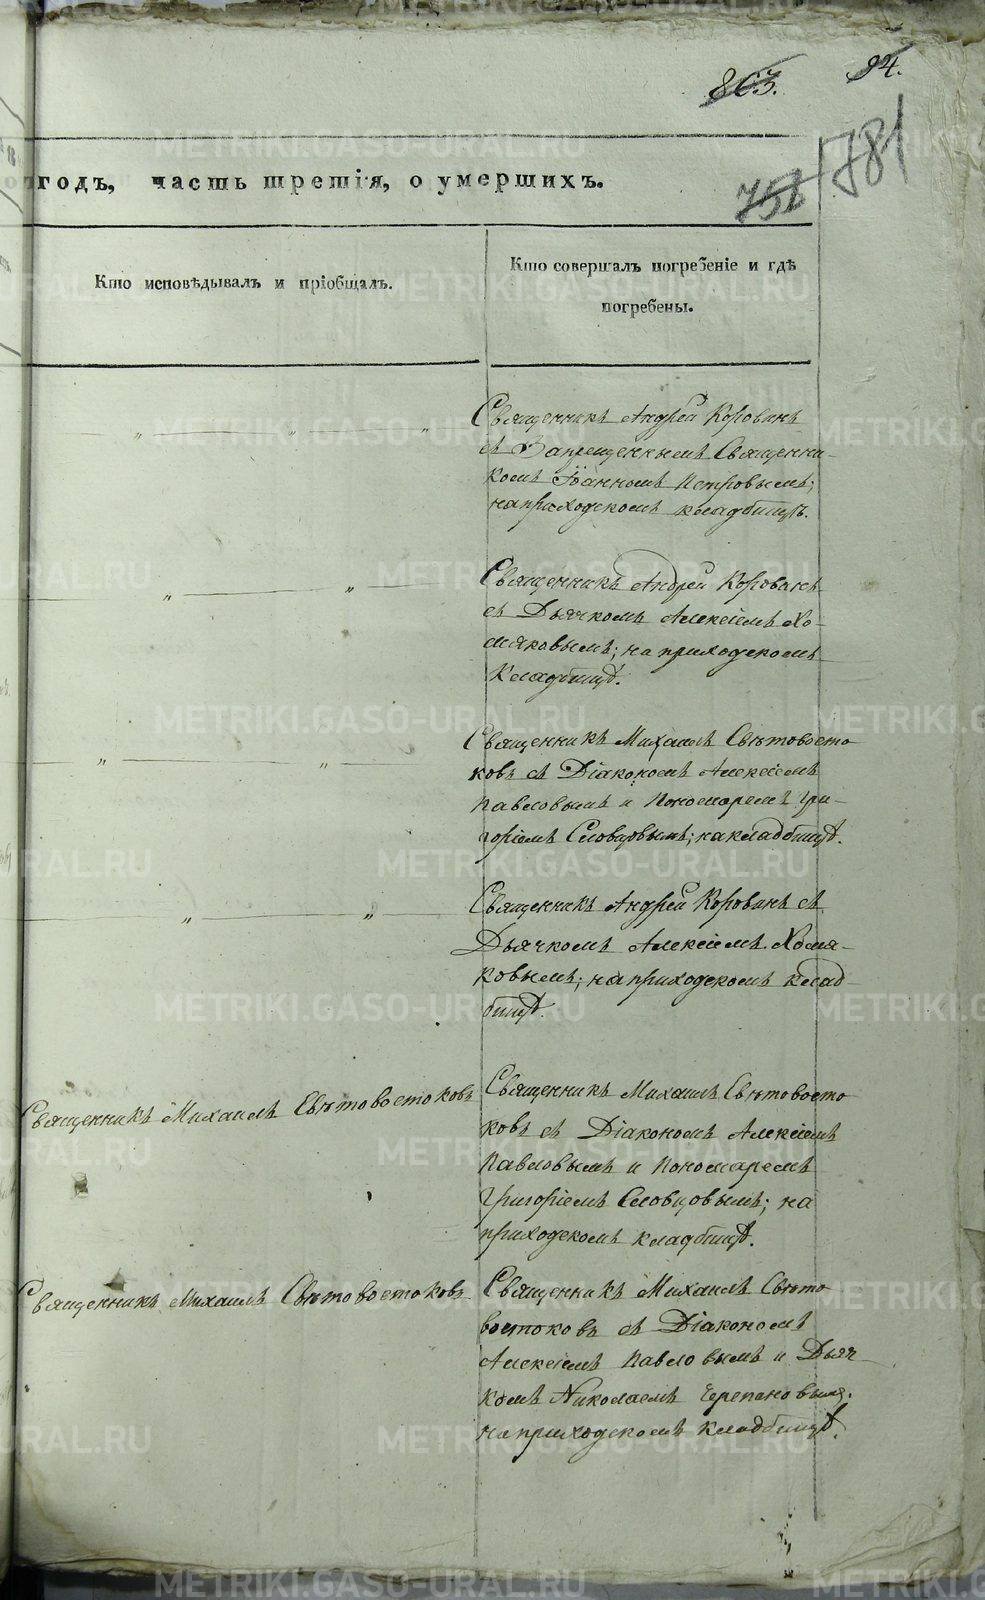 863.
94.
781
758
годъ, часть третія, о умершихъ.
Кто исповѣдывалъ и пріобщалъ.
Кто совершалъ погребеніе и гдѣ
погребены.
Священникъ Андрей Корованъ
съ Запрещеннымъ Священни-
комъ Іоанномъ Петровымъ;
на приходскомъ кладбищѣ.
Священникъ Андрей Корованъ
съ Дьячкомъ Алексіемъ Хо-
мяковымъ; на приходскомъ
кладбищѣ.
Священникъ Михаилъ Свѣтовосто
ковъ съ Діакономъ Алексіемъ
Павловымъ и Пономаремъ Гри-
горіемъ Словцовымъ; на кладбищѣ.
Священникъ Андрей Корованъ съ
Дьячкомъ Алексіемъ Хомя-
ковымъ; на приходскомъ клад-
бищѣ.
Священникъ Михаилъ Свѣтовостоковъ
Священникъ Михаилъ Свѣтовосто
ковъ съ Діакономъ Алексіемъ
Павловымъ и Пономаремъ
Григоріемъ Словцовымъ; на
приходскомъ кладбищѣ.
Священникъ Михаилъ Свѣтовостоковъ
Священникъ Михаилъ Свѣто
востоковъ съ Діакономъ
Алексіемъ Павловымъ и Дьяч
комъ Николаемъ Черепановымъ.
на приходскомъ кладбищѣ.
METRIKI.GASO-URAL.RU